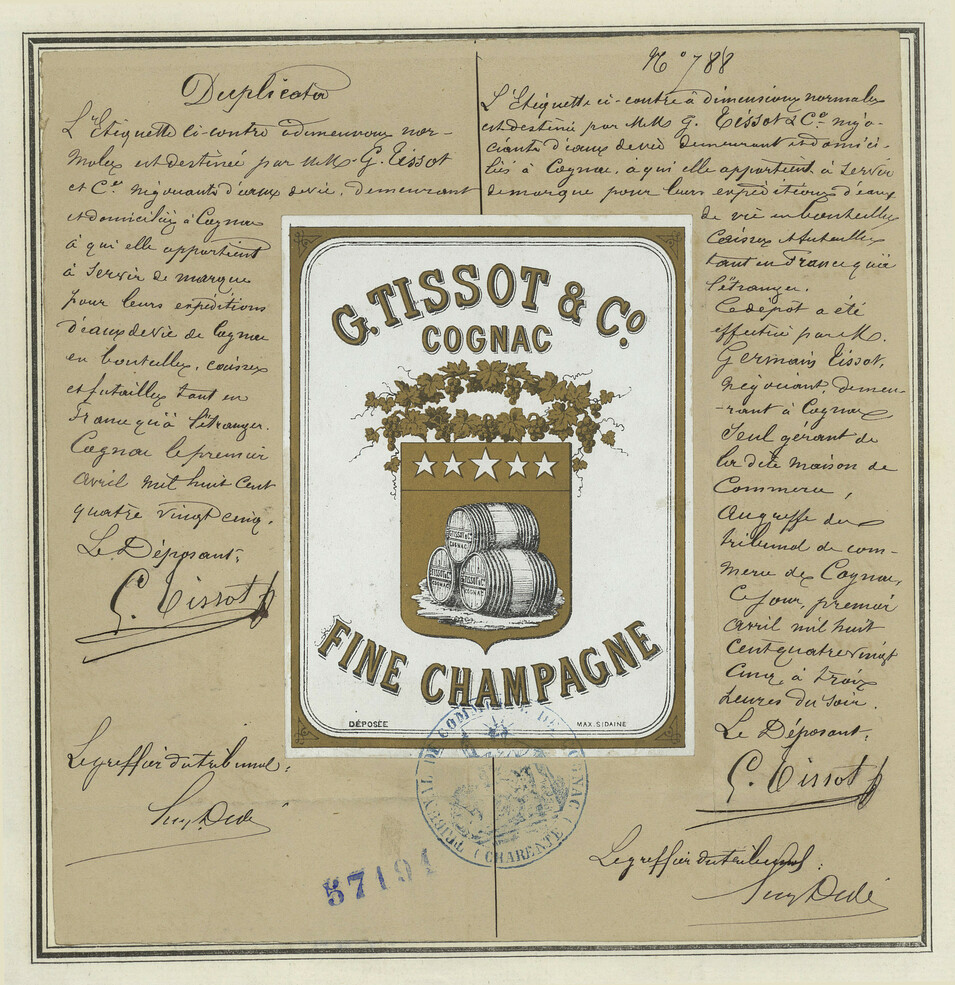 Duplicata
L'Etiquette ci-contre à dimensions nor-
males est destinée par MM. G. Tissot
et Cie négociants d'eaux de vie, demeurant
et domiciliés à Cognac
à qui elle appartient
à servir de marque
pour leurs expéditions
d'eaux de vie de Cognac
en bouteilles, caisses
et futailles tant en
France qu'à l'étranger.
Cognac le premier
avril mil huit cent
quatre vingt cinq.
Le Déposant,
G. Tissot
Le greffier du tribunal:
No 788
L'Etiquette ci-contre à dimensions normales
est destinée par MM. G. Tissot & Co négo-
ciants d'eaux de vie demeurant et domici-
liés à Cognac, à qui elle appartient, à servir
de marque pour leurs expéditions d'eaux
de vie en bouteilles
caisses et futailles
tant en France qu'à
l'étranger.
Ce dépôt a été
effectué par M.
Germain Tissot,
négociant, demeu-
-rant à Cognac
Seul gérant de
la dite maison de
Commerce,
au greffe du
tribunal de com-
merce de Cognac,
Ce jour, premier
avril mil huit
Cent quatre vingt
Cinq à trois
heures du soir.
Le Déposant,
G. Tissot
Le greffier du tribunal:
G. TISSOT & Co.
COGNAC
TISSOT & Co
COGNAC
TISSOT & Co
COGNAC
TISSOT & Co
COGNAC
FINE CHAMPAGNE
DÉPOSÉE
MAX. SIDAINE
TRIBUNAL DE COMMERCE DE COGNAC
(CHARENTE)
57191